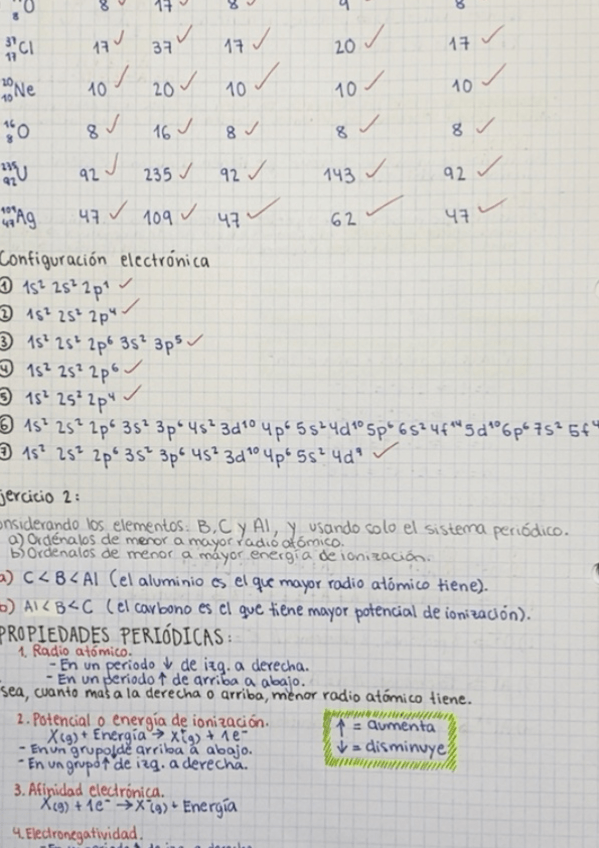 8 O 8 17 8 9 8
37 17 Cl 17 37 17 20 17
20 10 Ne 10 20 10 10 10
16 8 O 8 16 8 8 8
235 92 U 92 235 92 143 92
109 47 Ag 47 109 47 62 47
Configuración electrónica
① 1s² 2s² 2p¹
② 1s² 2s² 2p⁴
③ 1s² 2s² 2p⁶ 3s² 3p⁵
④ 1s² 2s² 2p⁶
⑤ 1s² 2s² 2p⁴
⑥ 1s² 2s² 2p⁶ 3s² 3p⁶ 4s² 3d¹⁰ 4p⁶ 5s² 4d¹⁰ 5p⁶ 6s² 4f¹⁴ 5d¹⁰ 6p⁶ 7s² 5f⁴
⑦ 1s² 2s² 2p⁶ 3s² 3p⁶ 4s² 3d¹⁰ 4p⁶ 5s² 4d⁹
jercicio 2:
onsiderando los elementos: B, C y Al, y usando solo el sistema periódico.
a) Ordénalos de menor a mayor radio atómico.
b) Ordénalos de menor a mayor energía de ionización.
a) C < B < Al (el aluminio es el que mayor radio atómico tiene).
b) Al < B < C (el carbono es el que tiene mayor potencial de ionización).
PROPIEDADES PERIÓDICAS:
1. Radio atómico.
- En un periodo ↓ de izq. a derecha.
- En un periodo ↑ de arriba a abajo.
sea, cuanto mas a la derecha o arriba, menor radio atómico tiene.
2. Potencial o energía de ionización.
X(g) + Energía → X⁺(g) + 1e⁻
- En un grupo ↓ de arriba a abajo.
- En un grupo ↑ de izq. a derecha.
↑ = aumenta
↓ = disminuye
3. Afinidad electrónica.
X(g) + 1e⁻ → X⁻(g) + Energía
4. Electronegatividad.